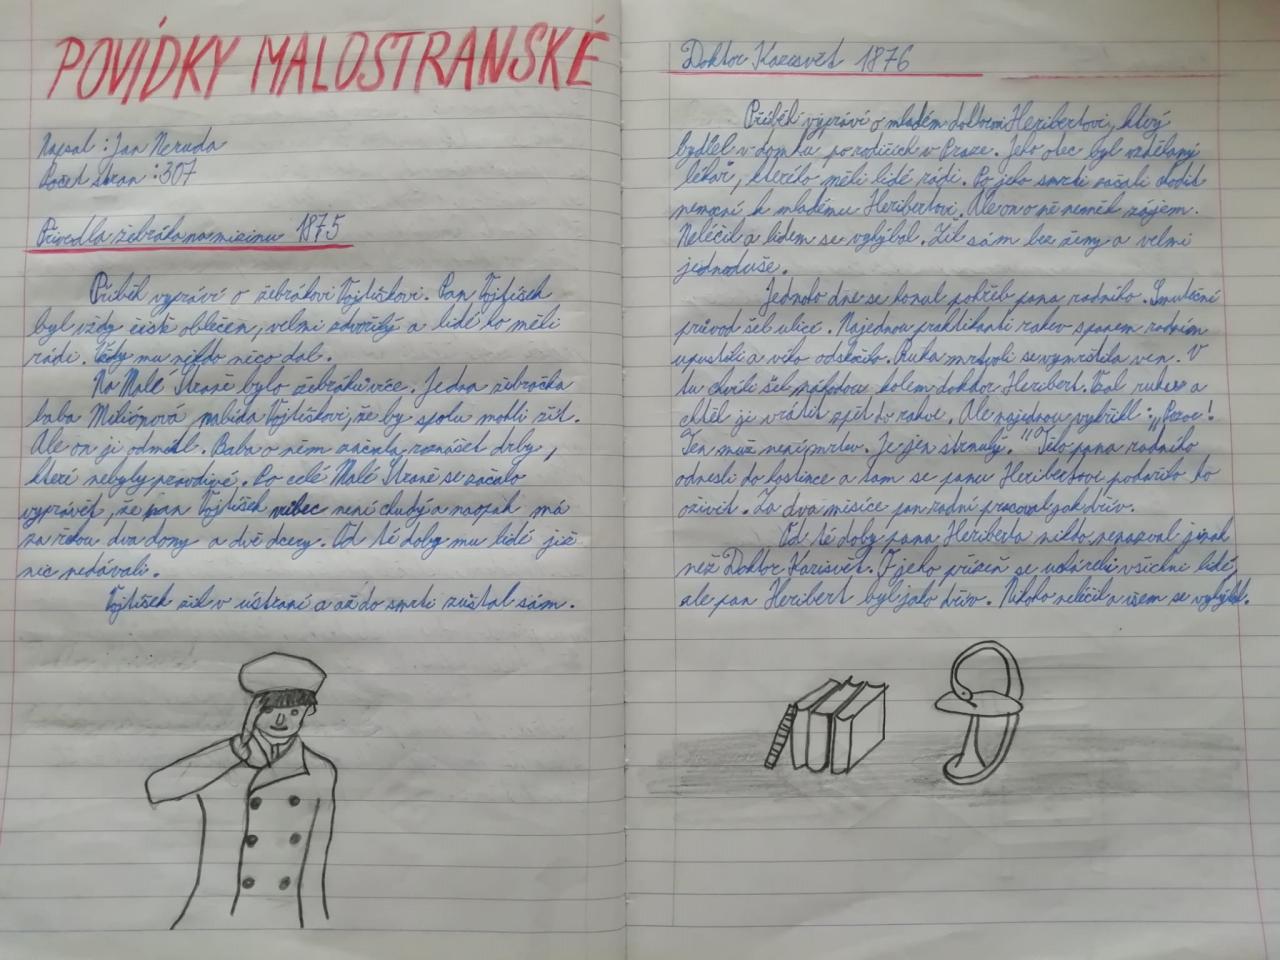 POVÍDKY MALOSTRANSKÉ
Napsal : Jan Neruda
Počet stran : 307
Přivedla žebráka na mizinu 1875
Příběh vypráví o žebrákovi Vojtíškovi. Pan Vojtíšek
byl vždy čistě oblečen, velmi zdvořilý a lidé ho měli
rádi. Vždy mu někdo něco dal.
Na Malé Straně bylo žebráků více. Jedna žebračka
baba Miliónová nabídla Vojtíškovi, že by spolu mohli žít.
Ale on ji odmítl. Baba o něm začala roznášet drby,
které nebyly pravdivé. Po celé Malé Straně se začalo
vyprávět, že pan Vojtíšek vůbec není chudý a naopak má
za řekou dva domy a dvě dcery. Od té doby mu lidé již
nic nedávali.
Vojtíšek žil v ústraní a až do smrti zůstal sám.
Doktor Kazisvět 1876
Příběh vypráví o mladém doktorovi Heribertovi, který
bydlel v domku po rodičích v Praze. Jeho otec byl vzdělaný
lékař, kterého měli lidé rádi. Po jeho smrti začali chodit
nemocní k mladému Heribertovi. Ale on o ně neměl zájem.
Neléčil a lidem se vyhýbal. Žil sám bez ženy a velmi
jednoduše.
Jednoho dne se konal pohřeb pana radního. Smuteční
průvod šel ulicí. Najednou praktikanti rakev s panem radním
upustili a víko odskočilo. Ruka mrtvoli se vymrštila ven. V
tu chvíli šel náhodou kolem doktor Heribert. Vzal ruku a
chtěl ji vrátit zpět do rakve. Ale najednou vykřikl : „Pozor!
Ten muž není mrtev. Je jen strnulý.“ Tělo pana radního
odnesli do hostince a tam se panu Heribertovi podařilo ho
oživit. Za dva měsíce pan radní pracoval jak dřív.
Od té doby pana Heriberta nikdo nenazval jinak
než Doktor Kazisvět. O jeho přízeň se ucházeli všichni lidé,
ale pan Heribert byl jako dřív. Nikoho neléčil a všem se vyhýbal.